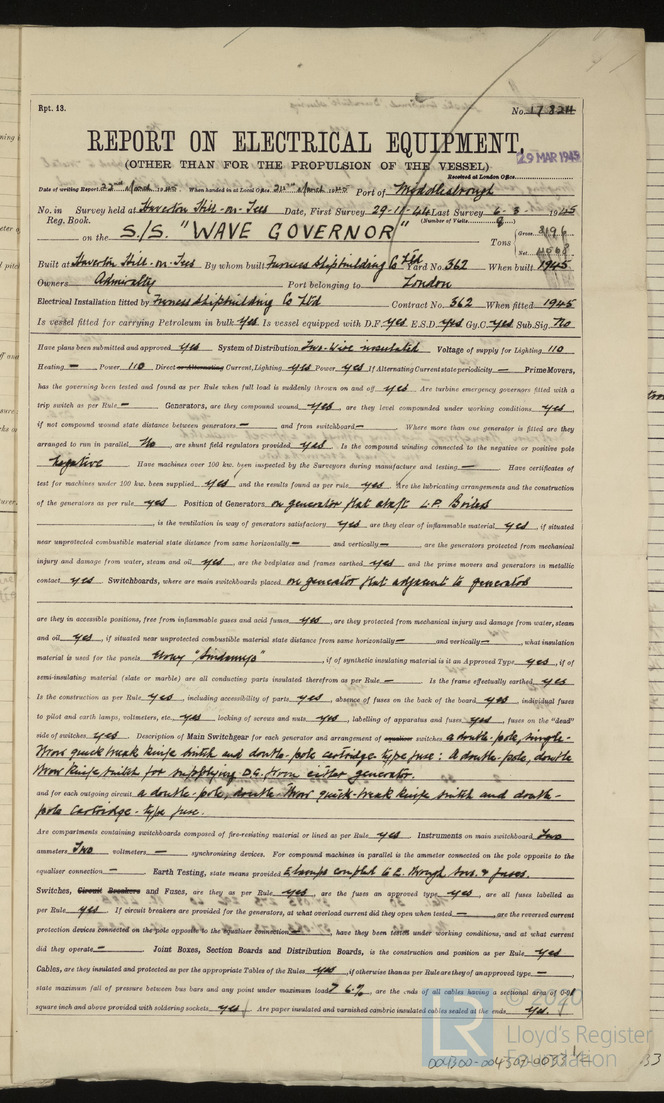 Rpt. 13.
No. 17824
REPORT ON ELECTRICAL EQUIPMENT.
(OTHER THAN FOR THE PROPULSION OF THE VESSEL).
29 MAR 1945
Received at London Office
Date of writing Report 22nd March 1945 When handed in at Local Office 24th March 1945 Port of Middlesbrough
No. in Survey held at Haverton Hill-on-Tees Date, First Survey 29-11-44 Last Survey 6-3-1945
Reg. Book. (Number of Visits 9)
on the S./S. "WAVE GOVERNOR" Tons Gross 8196 Net
Built at Haverton Hill-on-Tees By whom built Furness Shipbuilding Co Ltd Yard No. 362 When built 1945
Owners Admiralty Port belonging to London
Electrical Installation fitted by Furness Shipbuilding Co Ltd Contract No. 362 When fitted 1945
Is vessel fitted for carrying Petroleum in bulk yes Is vessel equipped with D.F. yes E.S.D. yes Gy.C. yes Sub.Sig. No
Have plans been submitted and approved yes System of Distribution Two-wire insulated Voltage of supply for Lighting 110
Heating – Power 110 Direct or Alternating Current, Lighting yes Power yes If Alternating Current state periodicity – Prime Movers,
has the governing been tested and found as per Rule when full load is suddenly thrown on and off yes Are turbine emergency governors fitted with a
trip switch as per Rule – Generators, are they compound wound yes, are they level compounded under working conditions yes,
if not compound wound state distance between generators – and from switchboard – Where more than one generator is fitted are they
arranged to run in parallel No, are shunt field regulators provided yes Is the compound winding connected to the negative or positive pole
negative Have machines over 100 kw. been inspected by the Surveyors during manufacture and testing – Have certificates of
test for machines under 100 kw. been supplied yes and the results found as per rule yes Are the lubricating arrangements and the construction
of the generators as per rule yes Position of Generators on generator flat abaft L.P. Boilers
, is the ventilation in way of generators satisfactory yes are they clear of inflammable material yes, if situated
near unprotected combustible material state distance from same horizontally – and vertically –, are the generators protected from mechanical
injury and damage from water, steam and oil yes, are the bedplates and frames earthed yes and the prime movers and generators in metallic
contact yes Switchboards, where are main switchboards placed on generator flat adjacent to generators
are they in accessible positions, free from inflammable gases and acid fumes yes, are they protected from mechanical injury and damage from water, steam
and oil yes, if situated near unprotected combustible material state distance from same horizontally – and vertically –, what insulation
material is used for the panels Ebony "Sindanyo", if of synthetic insulating material is it an Approved Type yes, if of
semi-insulating material (slate or marble) are all conducting parts insulated therefrom as per Rule – Is the frame effectually earthed yes
Is the construction as per Rule yes, including accessibility of parts yes, absence of fuses on the back of the board yes, individual fuses
to pilot and earth lamps, voltmeters, etc. yes locking of screws and nuts yes, labelling of apparatus and fuses yes, fuses on the "dead"
side of switches yes Description of Main Switchgear for each generator and arrangement of equaliser switches a double-pole, single-
throw quick break knife switch and double-pole cartridge-type fuse: A double-pole, double
throw knife switch for supplying D.G. from either generator.
and for each outgoing circuit a double-pole, double throw quick-break knife switch and double-
pole cartridge-type fuse.
Are compartments containing switchboards composed of fire-resisting material or lined as per Rule yes Instruments on main switchboard Two
ammeters Two voltmeters – synchronising devices. For compound machines in parallel is the ammeter connected on the pole opposite to the
equaliser connection – Earth Testing, state means provided E lamps coupled to E. through sws. & fuses.
Switches, Circuit Breakers and Fuses, are they as per Rule yes, are the fuses an approved type yes, are all fuses labelled as
per Rule yes If circuit breakers are provided for the generators, at what overload current did they open when tested –, are the reversed current
protection devices connected on the pole opposite to the equaliser connection –, have they been tested under working conditions, and at what current
did they operate – Joint Boxes, Section Boards and Distribution Boards, is the construction and position as per Rule yes
Cables, are they insulated and protected as per the appropriate Tables of the Rules yes, if otherwise than as per Rule are they of an approved type –,
state maximum fall of pressure between bus bars and any point under maximum load > 6%, are the ends of all cables having a sectional area of 0·01
square inch and above provided with soldering sockets yes Are paper insulated and varnished cambric insulated cables sealed at the ends yes.
© 2020
Lloyd's Register
Foundation
004300-004307-0033 1/2